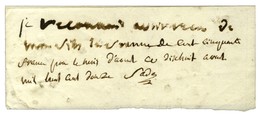 je reconnais avoir recu de
mon fils la somme de cent cinquante
francs pour le mois d'aout ce dixhuit aout
mil huit cent douze Sade